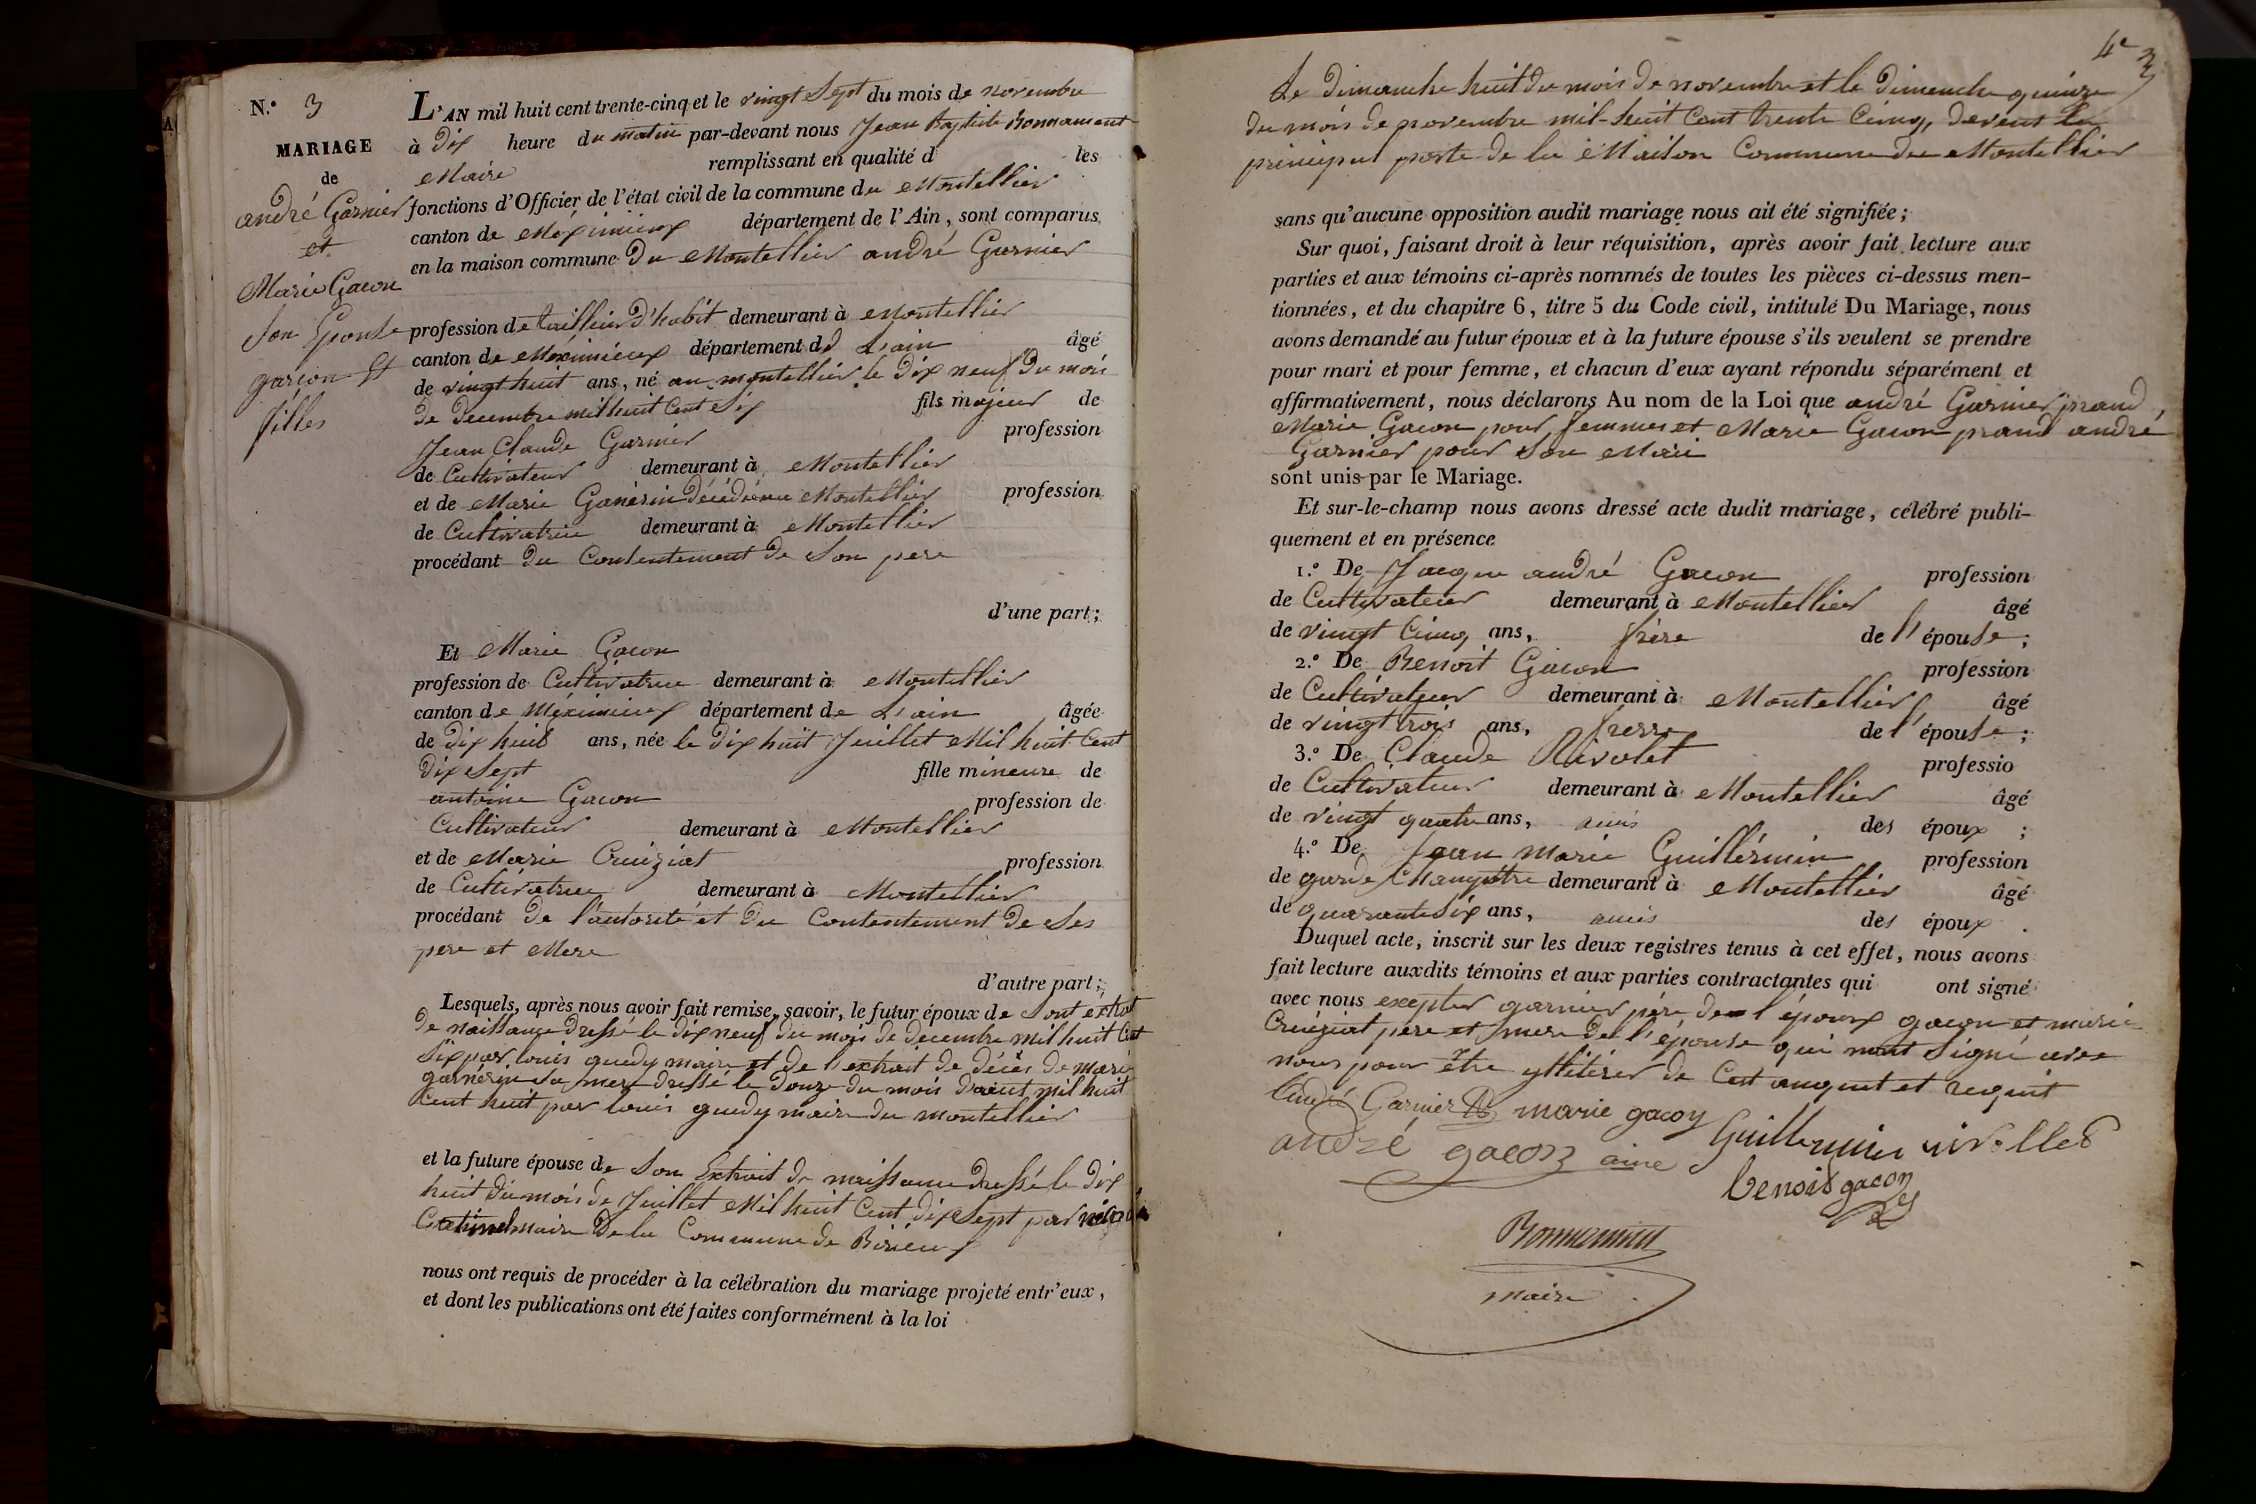 N.° 3
MARIAGE
de
andré Garnier
et
Marie Gacon
Son Epouse
garcon et
filles
L'AN mil huit cent trente-cinq et le vingt Sept du mois de novembre
à dix heure du matin par-devant nous Jean Baptiste Bonnamant
Maire remplissant en qualité d les
fonctions d'Officier de l'état civil de la commune du Montellier
canton de Méximieux département de l'Ain, sont comparus
en la maison commune Du Montellier andré Garnier
profession de tailleur d'habit demeurant à Montellier
canton de Méximieux département dd L'ain âgé
de vingt huit ans, né au montellier le dix neuf du mois
de decembre mil huit cent Six fils majeur de
Jean Claude Garnier profession
de Cultivateur demeurant à Montellier
et de Marie Ganèrin décédée au Montellier profession
de Cultivatrice demeurant à Montellier
procédant du Consentement de Son pere
d'une part;
Et Marie Gacon
profession de Cultivatrice demeurant à Montellier
canton de Méximieux département de L'ain âgée
de dix huit ans, née le dix huit Juillet Mil huit Cent
dix Sept fille mineure de
antoine Gacon profession de
Cultivateur demeurant à Montellier
et de Marie Cruiziat profession
de Cultivatrice demeurant à Montellier
procédant de l'autorité et du Consentement de Ses
pere et Mere
d'autre part;
Lesquels, après nous avoir fait remise, savoir, le futur époux de Sont extrat
de naissance dressé le dix neuf du mois de decembre mil huit Cent
Six par louis guedy maire et de l'extrait de décès de marie
garnérin Sa mere dressé le douze du mois d'aout mil huit
Cent huit par louis guedy maire du montellier
et la future épouse de Son Extrait de naissance dressé le dix
huit du mois de Juillet Mil huit Cent dix Sept par
maire De la Commune de Birieux
nous ont requis de procéder à la célébration du mariage projeté entr'eux,
et dont les publications ont été faites conformément à la loi
4e
3
Le Dimanche huit du mois de novembre et le dimenche quinze
du mois de novembre mil-huit Cent trente Cinq, devent la
principal porte de la Maison Commune du Montellier
sans qu'aucune opposition audit mariage nous ait été signifiée;
Sur quoi, faisant droit à leur réquisition, après avoir fait lecture aux
parties et aux témoins ci-après nommés de toutes les pièces ci-dessus men-
tionnées, et du chapitre 6, titre 5 du Code civil, intitulé Du Mariage, nous
avons demandé au futur époux et à la future épouse s'ils veulent se prendre
pour mari et pour femme, et chacun d'eux ayant répondu séparément et
affirmativement, nous déclarons Au nom de la Loi que andré Garnier prand
Marie Gacon pour femme et Marie Gacon prand andré
Garnier pour Son Mari
sont unis par le Mariage.
Et sur-le-champ nous avons dressé acte dudit mariage, célébré publi-
quement et en présence
1.° De Jacque andré Gacon profession
de Cultivateur demeurant à Montellier âgé
de vingt Cinq ans, frère de l'épouse;
2.° De Benoit Gacon profession
de Cultivateur demeurant à Montellier âgé
de vingt trois ans, frerre de l'épouse;
3.° De Claude Rivolet professio
de Cultivateur demeurant à Montellier âgé
de vingt quatre ans, amis des époux;
4.° De Jean marie Guillérmin profession
de garde Champêtre demeurant à Montellier âgé
de quarante Six ans, amis des époux.
Duquel acte, inscrit sur les deux registres tenus à cet effet, nous avons
fait lecture auxdits témoins et aux parties contractantes qui ont signé
avec nous excepter garnier père de l'époux gacon et marie
Cruiziat pere et mere de l'épouse qui nont Signé avec
nous pour être yllitérer de Cest anquut et requit
André Garnier marie gacon
andré gacon ainé Guillermin rivolled
benoit gacon
Bonnamant
maire